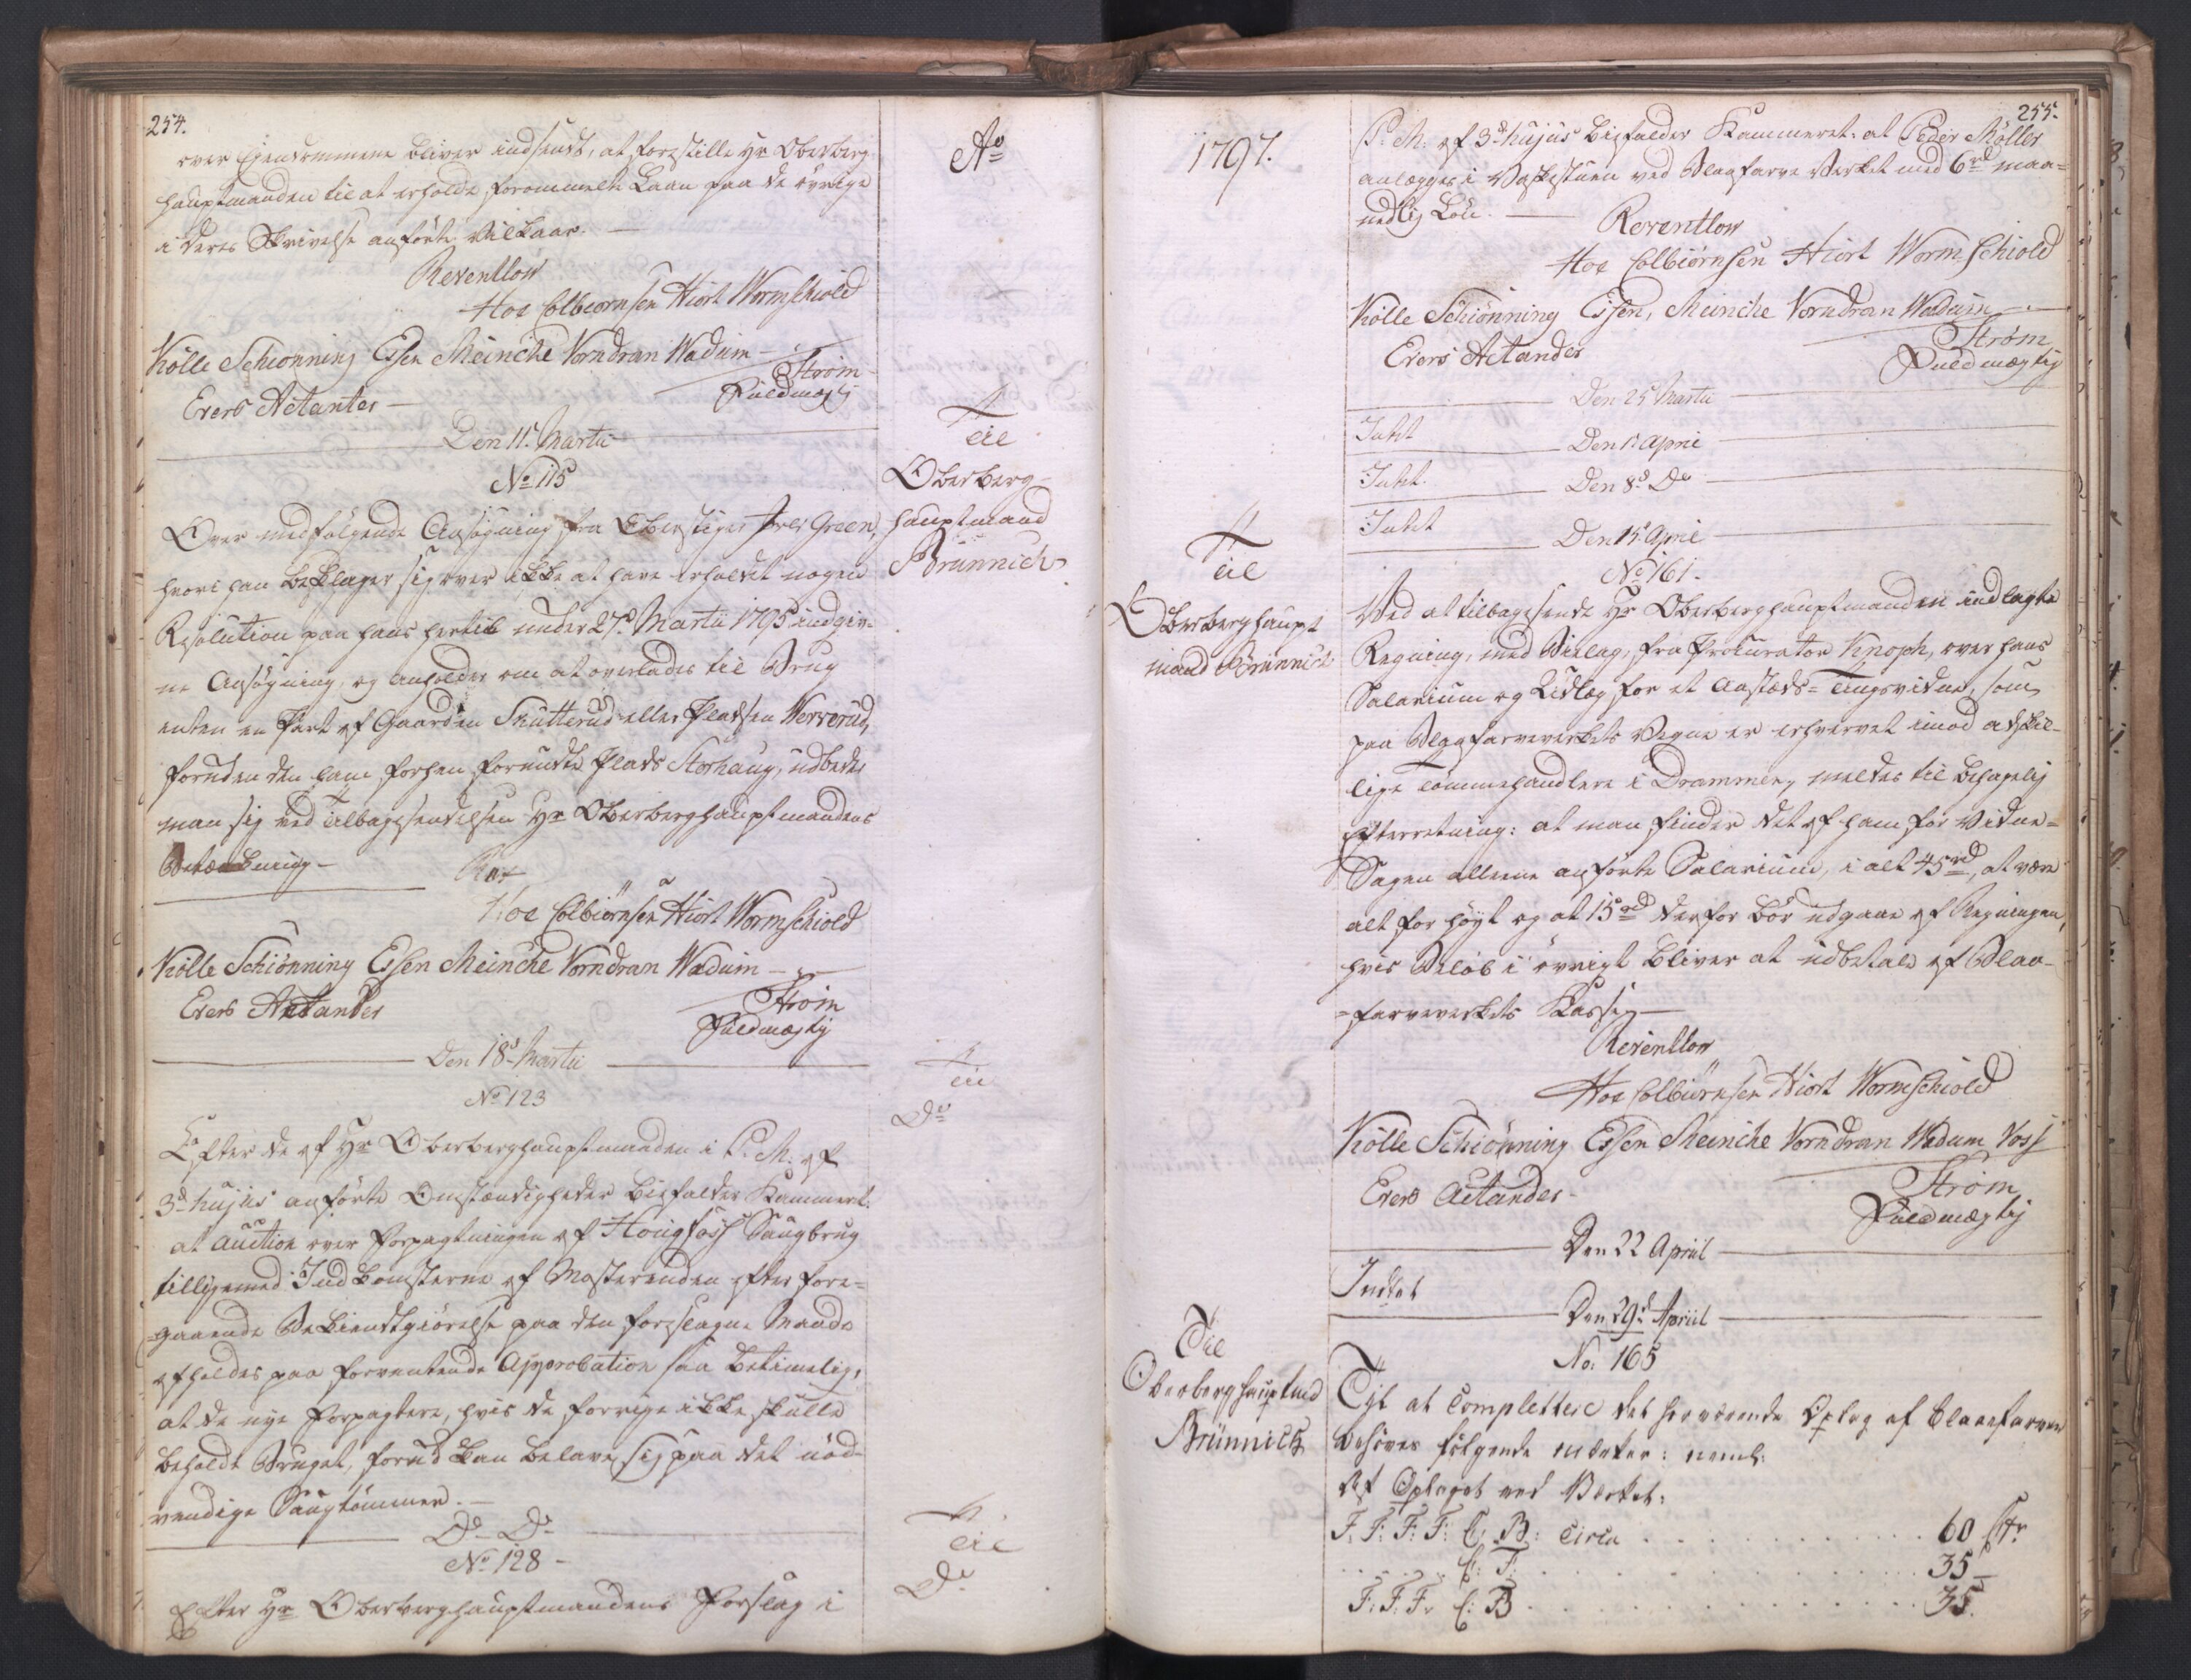 254.
over Ejendommene bliver indsendt, at forestille Hr Oberberg
hauptmanden til at erholde forommelte Laan paa de övrige
i deres Skrivelse anförte Vilkaar. —
Reventlow
Hoe Colbiørnsen Hiort Wormschiold
Kölle Schiønning Essen Meinche Vorndran Wadum —
Ström
Evers Actander —
Fuldmægtig
Den 11te Martii
No 115
Over medfölgende Ansögning fra Oberstiger Green,
hvori han beklager sig over ikke at have erholdet nogen
Resolution paa hans hertil under 27de Martii 1795 indgiv-
ne Ansögning, og anholder om at overlades til Brug
enten en Part af Gaarden Skutterud eller Pladsen Ververud,
foruden den ham forhen forundte Plads Storhaug, udbeder
man sig ved Tilbagesendelsen Hr Oberberghauptmandens
Betænkning —
Rev
Hoe Colbiörnsen Hiort Wormschiold
Kölle Schiønning Essen Meinche Vorndran Wadum —
Ström
Evers Actander
Fuldmægtig
Den 18de Martii
No 123
Efter de af Hr Oberberghauptmanden i P. M. af
3de hujus anförte Omstændigheder bifalder Kammeret:
at Auction over Forpagtningen af Hougfoss Saugbrug
tilligemed Indkomsterne af Mosterenden efter fore-
gaaende Bekiendtgiörelse paa den foreslagne Maade
afholdes paa forventende Approbation saa betimelig,
at de nye Forpagtere, hvis de forrige ikke skulle
beholde Bruget, forud kan belave sig paa det nöd-
vendige Saugtömmer. —
Do Do
No 128 —
Efter Hr Oberberghauptmandens Forslag i
Ao
Til
Oberberg
hauptmand
Brünnich
Til
Do
Til
Do
1797.
Til
Oberberghaupt
mand Brünnich
Til
Oberberghauptmd
Brünnich
255.
P. M. af 3de hujus bifalder Kammeret: at Peder Möller
anlægges i Vaskestuen ved Blaafarve Verket med 6 rd maa-
nedlig Lön. —
Reventlow
Hoe Colbiørnsen Hiort Wormschiold
Kölle Schiönning Essen, Meinche Vorndran Wadum —
Strøm
Evers Actander
Fuldmægtig
Den 25 Martii
Intet
Den 1. April
Intet.
Den 8de Do
Intet
Den 15. April
No 161.
Ved at tilbagesende Hr Oberberghauptmanden indlagte
Regning, med Bielag, fra Procurator Knoph, over hans
Salarium og Udlæg for et Aasteds-Tingsvidne, som
paa Blaafarveverkets Vegne er erhvervet imod adskil-
lige Tömmehandlere i Drammen, meldes til behagelig
Efterretning: at man finder det af ham for Vidne-
Sagen allene anförte Salarium, i alt 45 rd, at være
alt for höyt og at 15 rd derfor bör udgaae af Regningen,
hvis Belöb i övrigt bliver at udbetale af Blaa-
=farveverkets Kasse —
Reventlow
Hoe Colbiørnsen Hiort Wormschiold
Kölle Schiönning Essen Meinche Vorndran Wadum Voss
Strøm
Evers Actander —
Fuldmægtig
Den 22 April
Intet
Den 29d April
No. 165
Til at Complettere det herværende Oplag af Blaaefarver
behöves fölgende mærker: neml:
Af Oplaget ved Værket:
F. F: F: F: C. B: circa . . . . . . . . 60 Ctr
. . . . . C: F: . . . . . . . . 35 —
F: F: F. C: B . . . . . . . . 35.